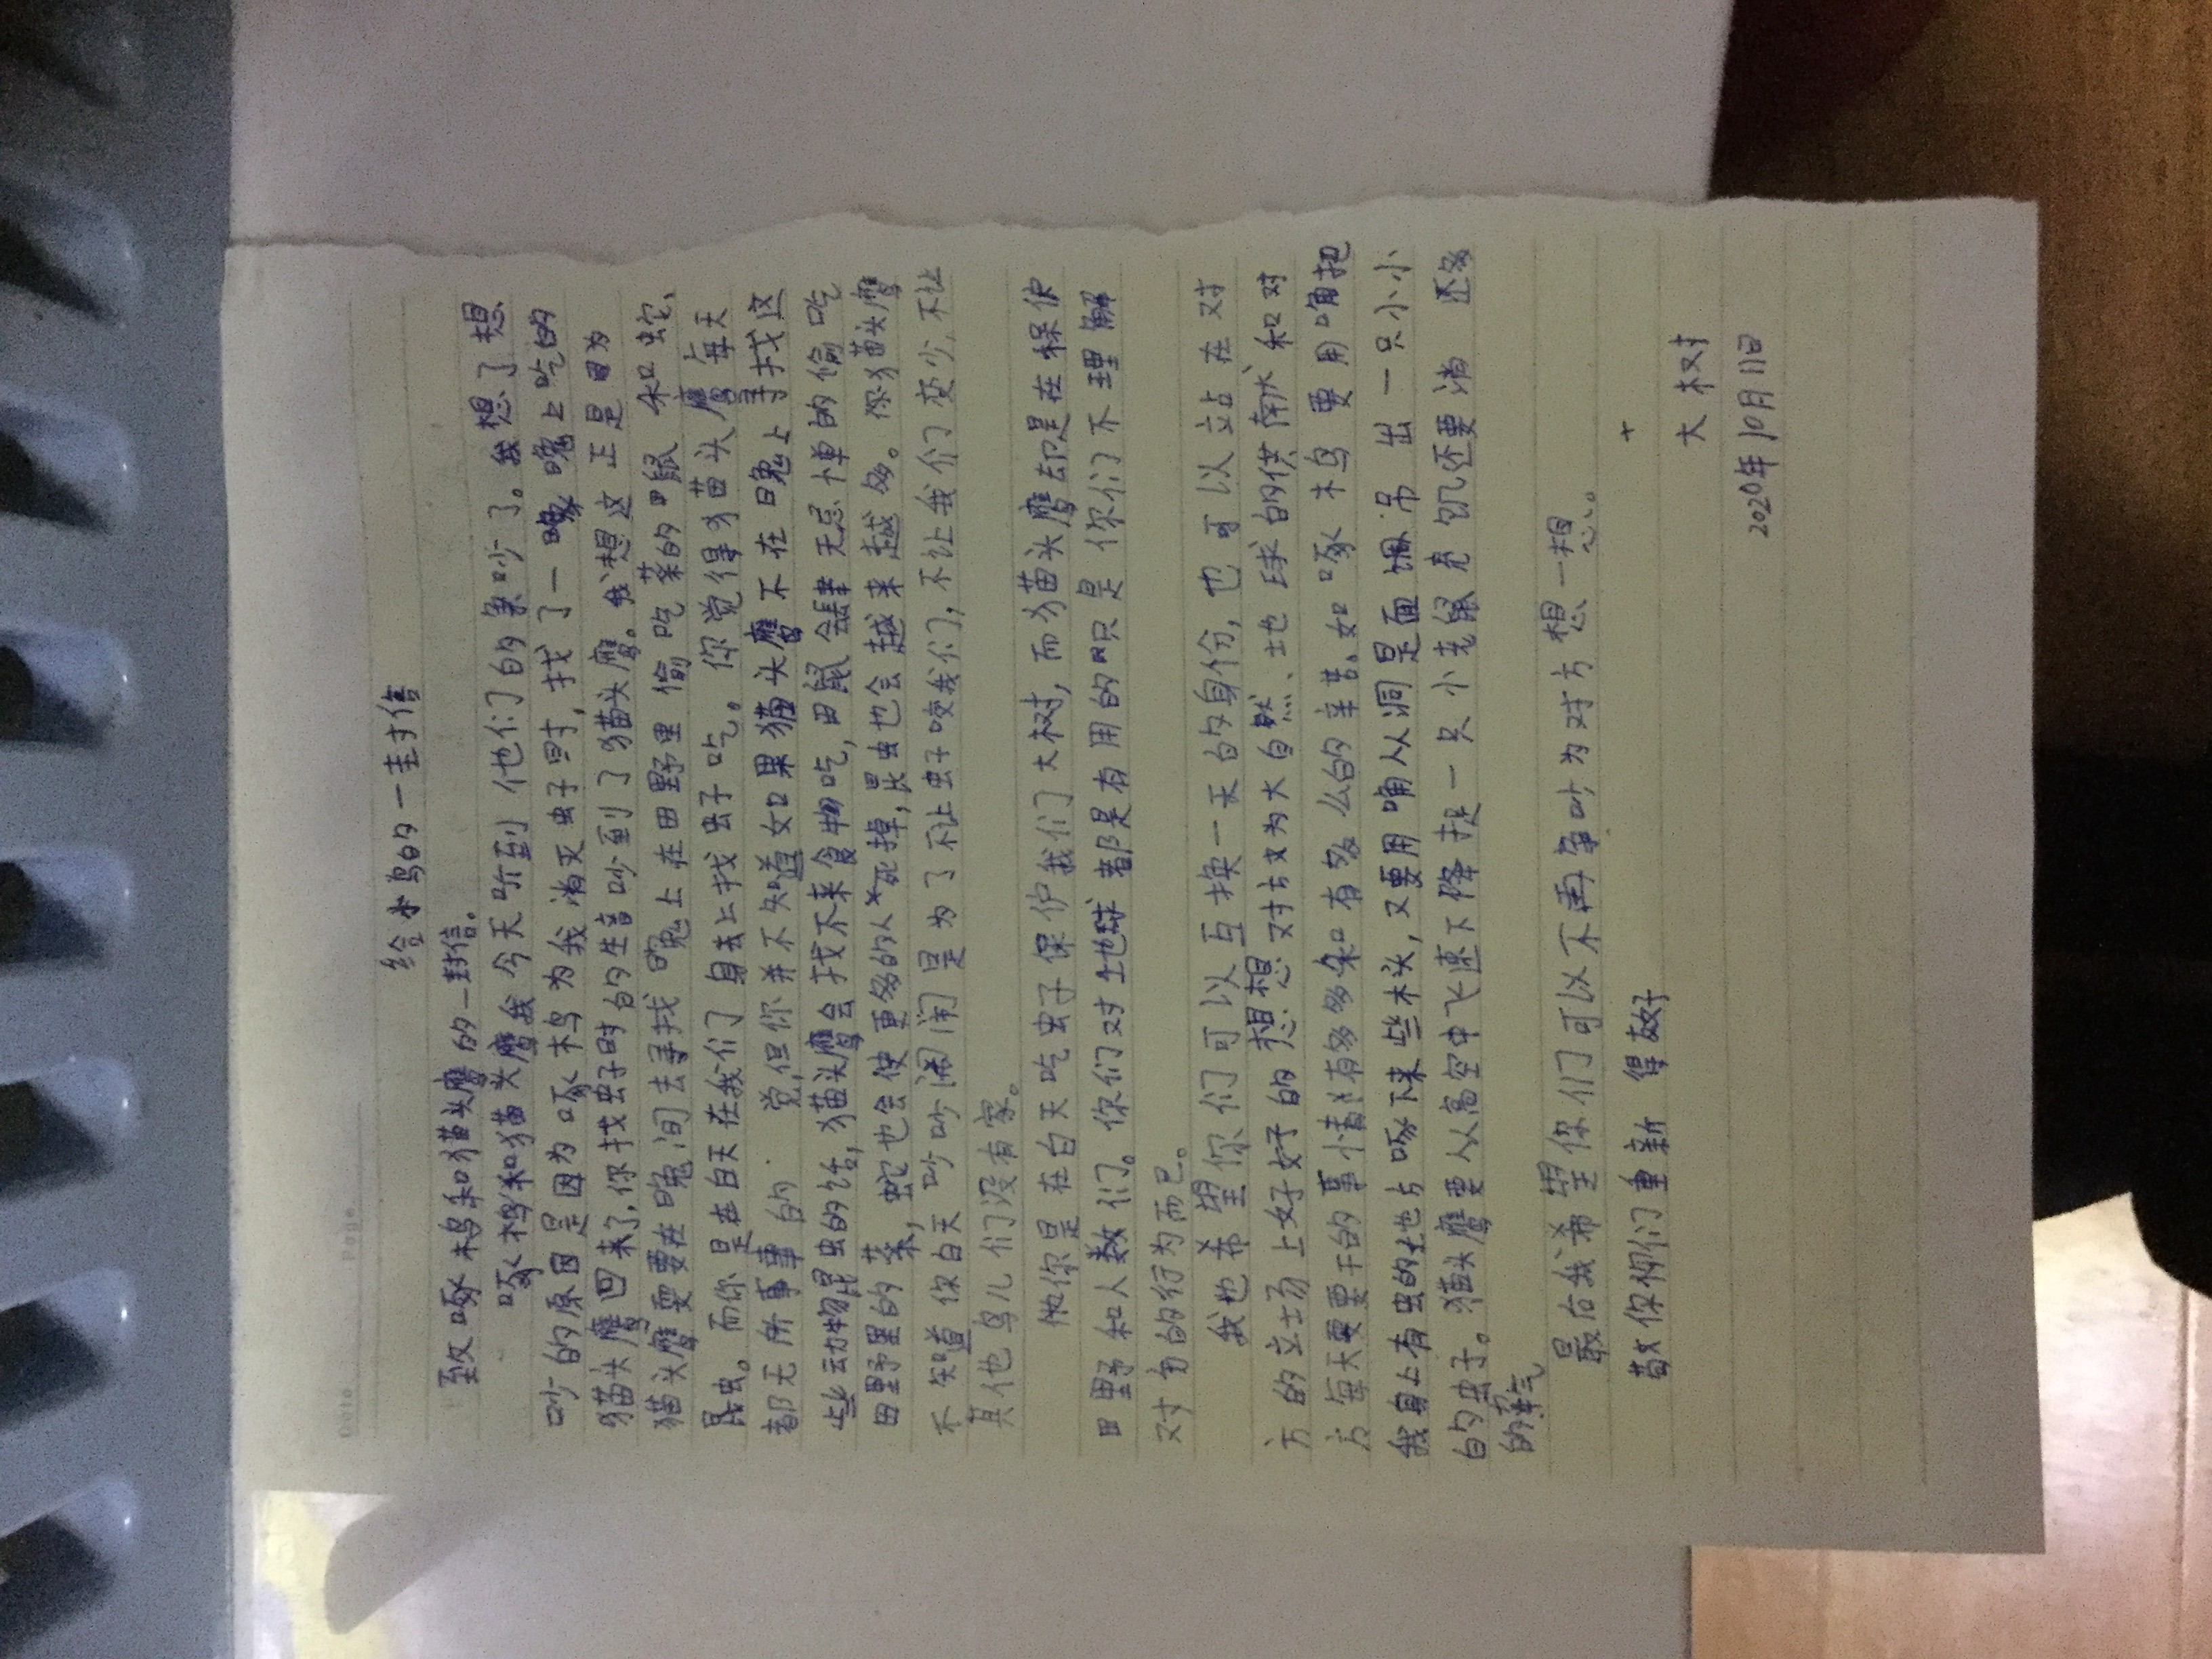 Date Page
给鸟的一封信
致啄木鸟和猫头鹰的一封信。
啄木鸟和猫头鹰我今天听到你们的争吵了。我想了想
吵的原因是因为啄木鸟为我消灭虫子时,找了一晚上吃的
猫头鹰回来了,你找虫子时的声音吵到了猫头鹰。我想这正是因为
猫头鹰要在晚间去寻找晚上在田野里偷吃菜的田鼠和蛇、
昆虫。而你是在白天在我们身去上找虫子吃。你觉得猫头鹰每天
都无所事事的 觉,但你并不知道如果猫头鹰不在晚上寻找这
些动物昆虫的话,猫头鹰会找不来食物吃,田鼠会肆无忌惮的偷吃
田野里的菜,蛇也会使更多的人死掉,昆虫也会越来越多。你猫头鹰
不知道你白天吵吵闹闹是为了不让虫子咬我们,不让我们变少,不让
其他鸟儿们没有家。
你是在白天吃虫子保护我们大树,而猫头鹰却是在保护
田野和人类们。你们对地球都是有用的只是你们不理解
对方的行为而已。
我也希望你们可以互换一天的身份,也可以站在对
方的立场上好好的想想对方为大自然、地球的供献和对
方每天要干的事情有多多和有多么的辛苦。如啄木鸟要用嘴把
我身上有虫的地方啄下来些木头,又要用嘴从洞里面 出一只小小
的虫子。猫头鹰要从高空中飞速下降捉一只小老鼠充饥还要消 还多
的力气
最后我希望你们可以不再争吵为对方想一想。
敬你们们重新得友好
大树
2020年10月11日